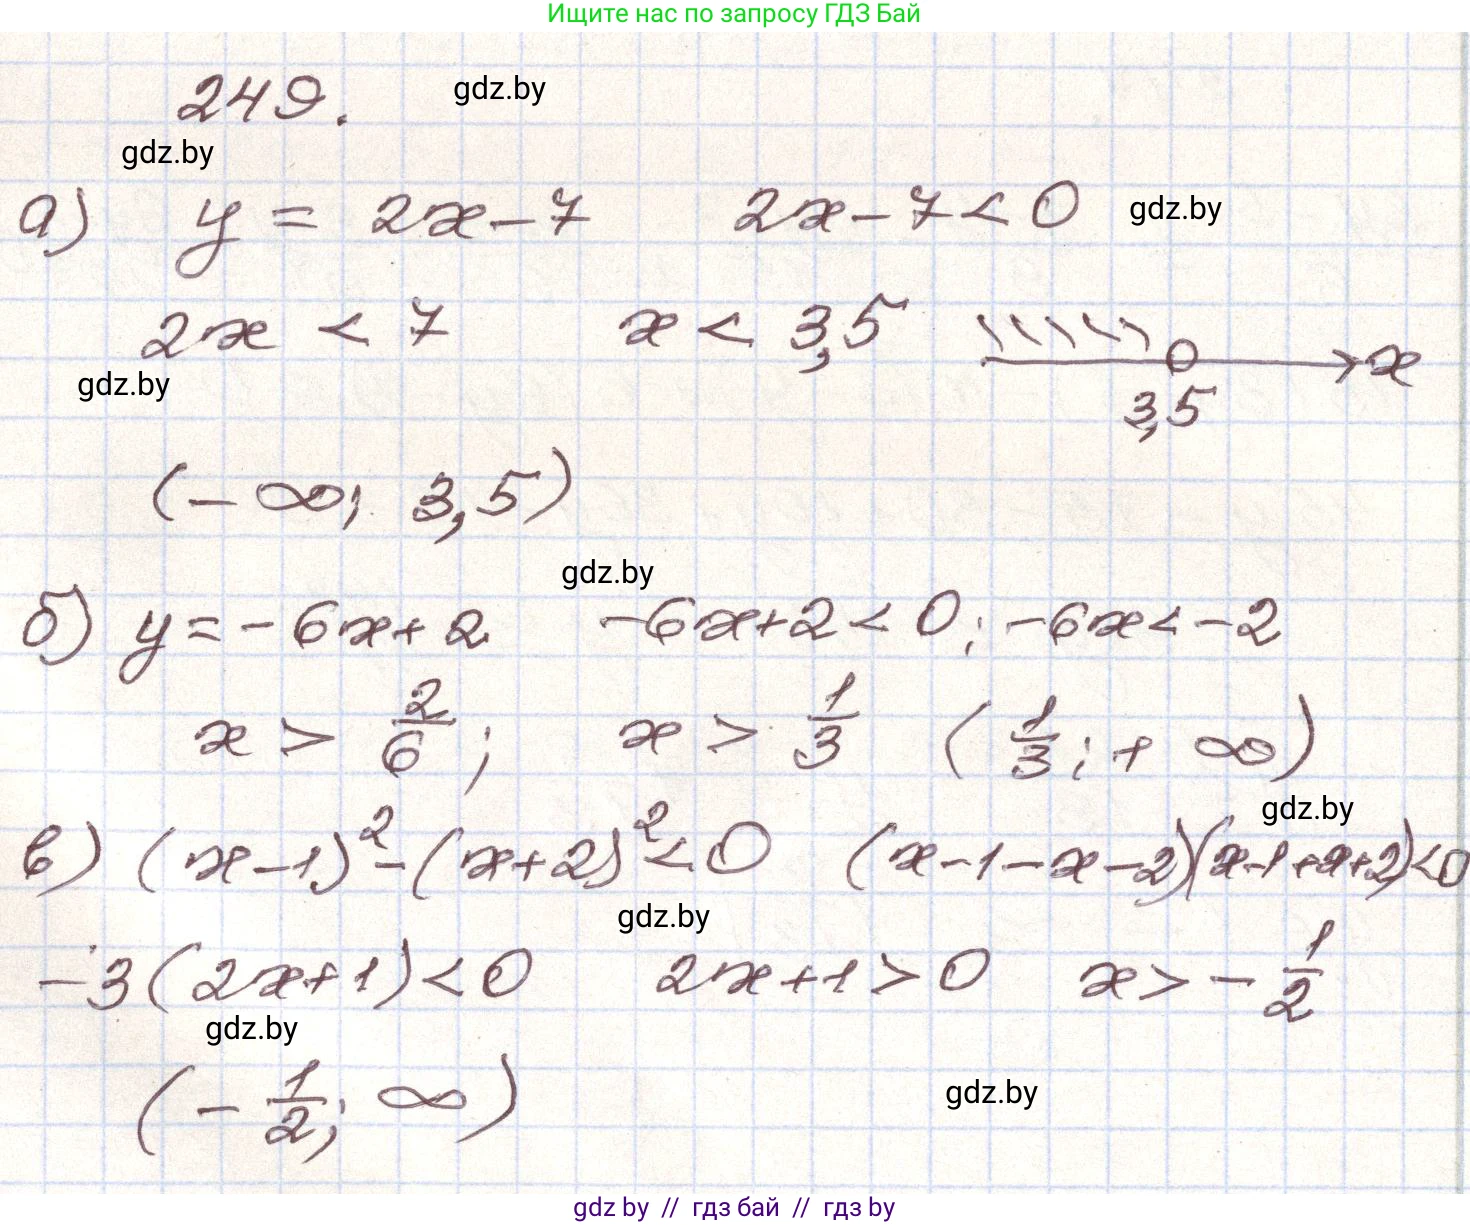 Ищите нас по запросу ГДЗ Бай
249. gdz.by
gdz.by
а) y = 2x - 7 2x - 7 < 0 gdz.by
2x < 7 x < 3,5 x
gdz.by 3,5
(-∞; 3,5)
gdz.by
б) y = -6x + 2 -6x + 2 < 0; -6x < -2
x > 2/6; x > 1/3 (1/3; + ∞)
gdz.by
в) (x-1)² - (x+2)² < 0 (x-1-x-2)(x-1+x+2)<0
gdz.by
-3(2x+1)<0 2x+1>0 x > -1/2
gdz.by
(-1/2; ∞) gdz.by
gdz by // гдз бай // гдз by